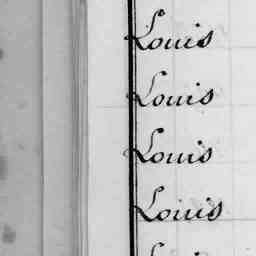 Louis
Louis
Louis
Louis